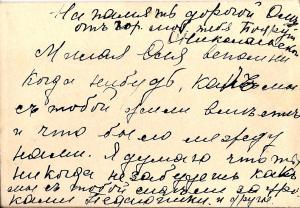 На память дорогой Оле
от гор. люб. тебя подруги
Милая Оля вспомни
когда нибудь, как мы
с тобой жили вместе
и что было между
нами. Я думаю что ты
никогда не забудешь как
мы с тобой спали за уро
ками педагогики. и другие.